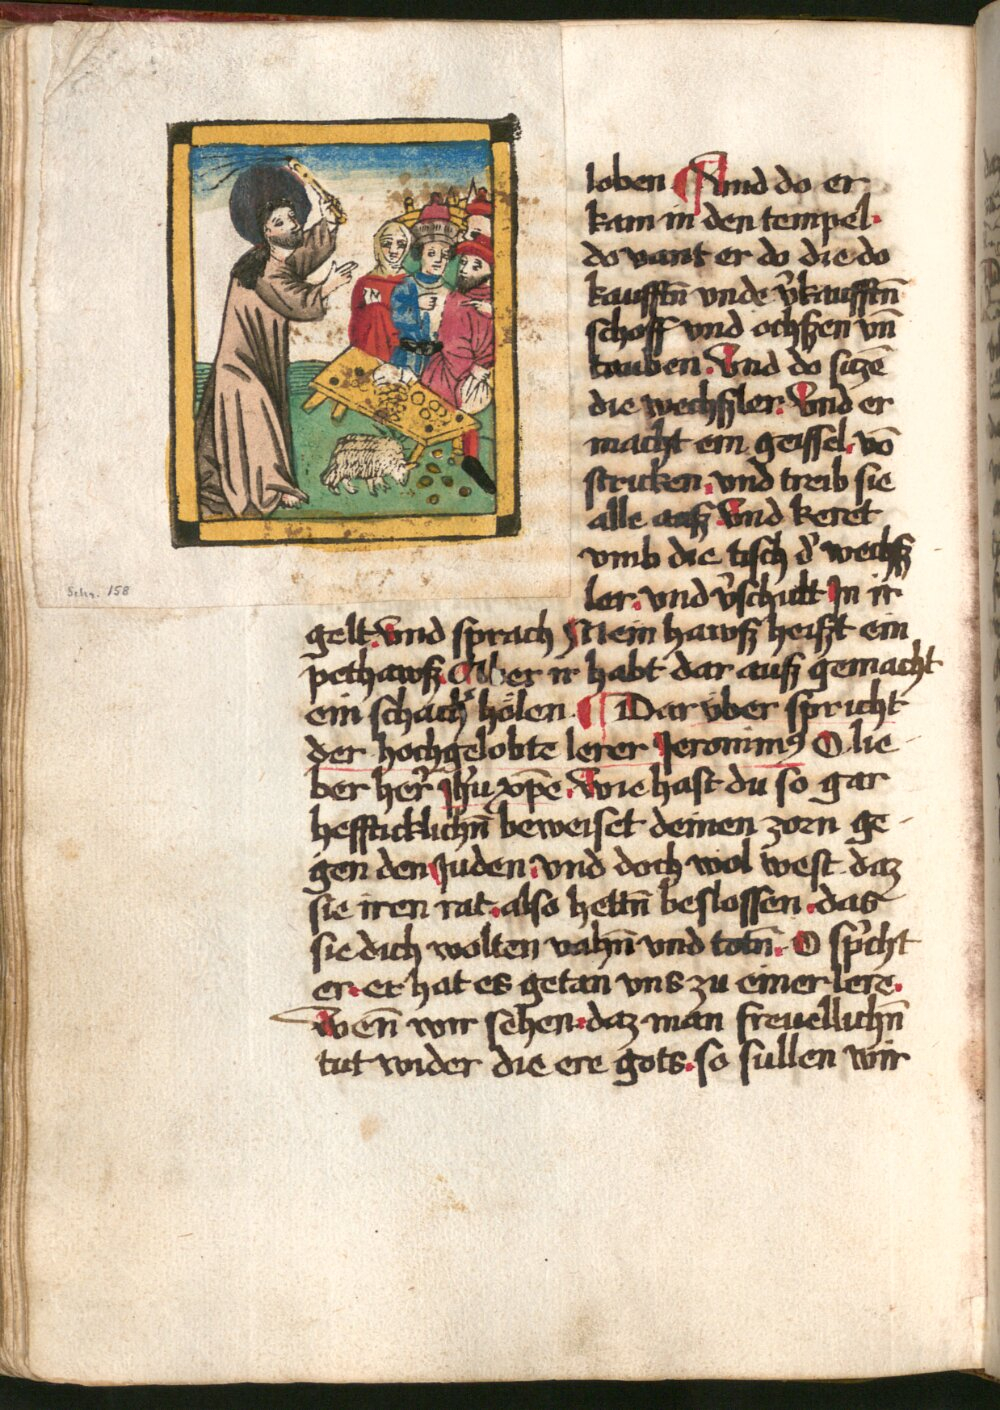 loben ¶ Vnd do er
kam in den tempel.
do vant er do die do
kaufftn̄ vnde v̉kaufftn̄
schoff vnd ochßen vn̄
tauben. Vnd do siczē
die wechßler. Vnd er
macht ein geissel. vō
stricken. vnd treib sie
alle auß. Vnd keret
vmb die tisch d̉ wechß
ler. vnd v̉schutt In ir
gelt. Vnd sprach Mein hawß heißt ein
pethawß. Aber ir habt dar auß gemacht
ein schach̉ hölen. ¶ Dar vber spricht
der hochgelobte lerer Jeronimꝰ O lie
ber her̉ Jhū xpē. Wie hast du so gar
hefftticklichn̄ beweiset deinen zorn ge-
gen den Juden. vnd doch wol west daz
sie iren rat. also hettn̄ beslossen. das
sie dich wolten vahn̄ vnd totn̄. O sp̉cht
er. er hat es getan vns zu einer lere.
Wen̄ wir sehen. daz man freuellichn̄
tut wider die ere gots. so sullen wir
Schr. 158